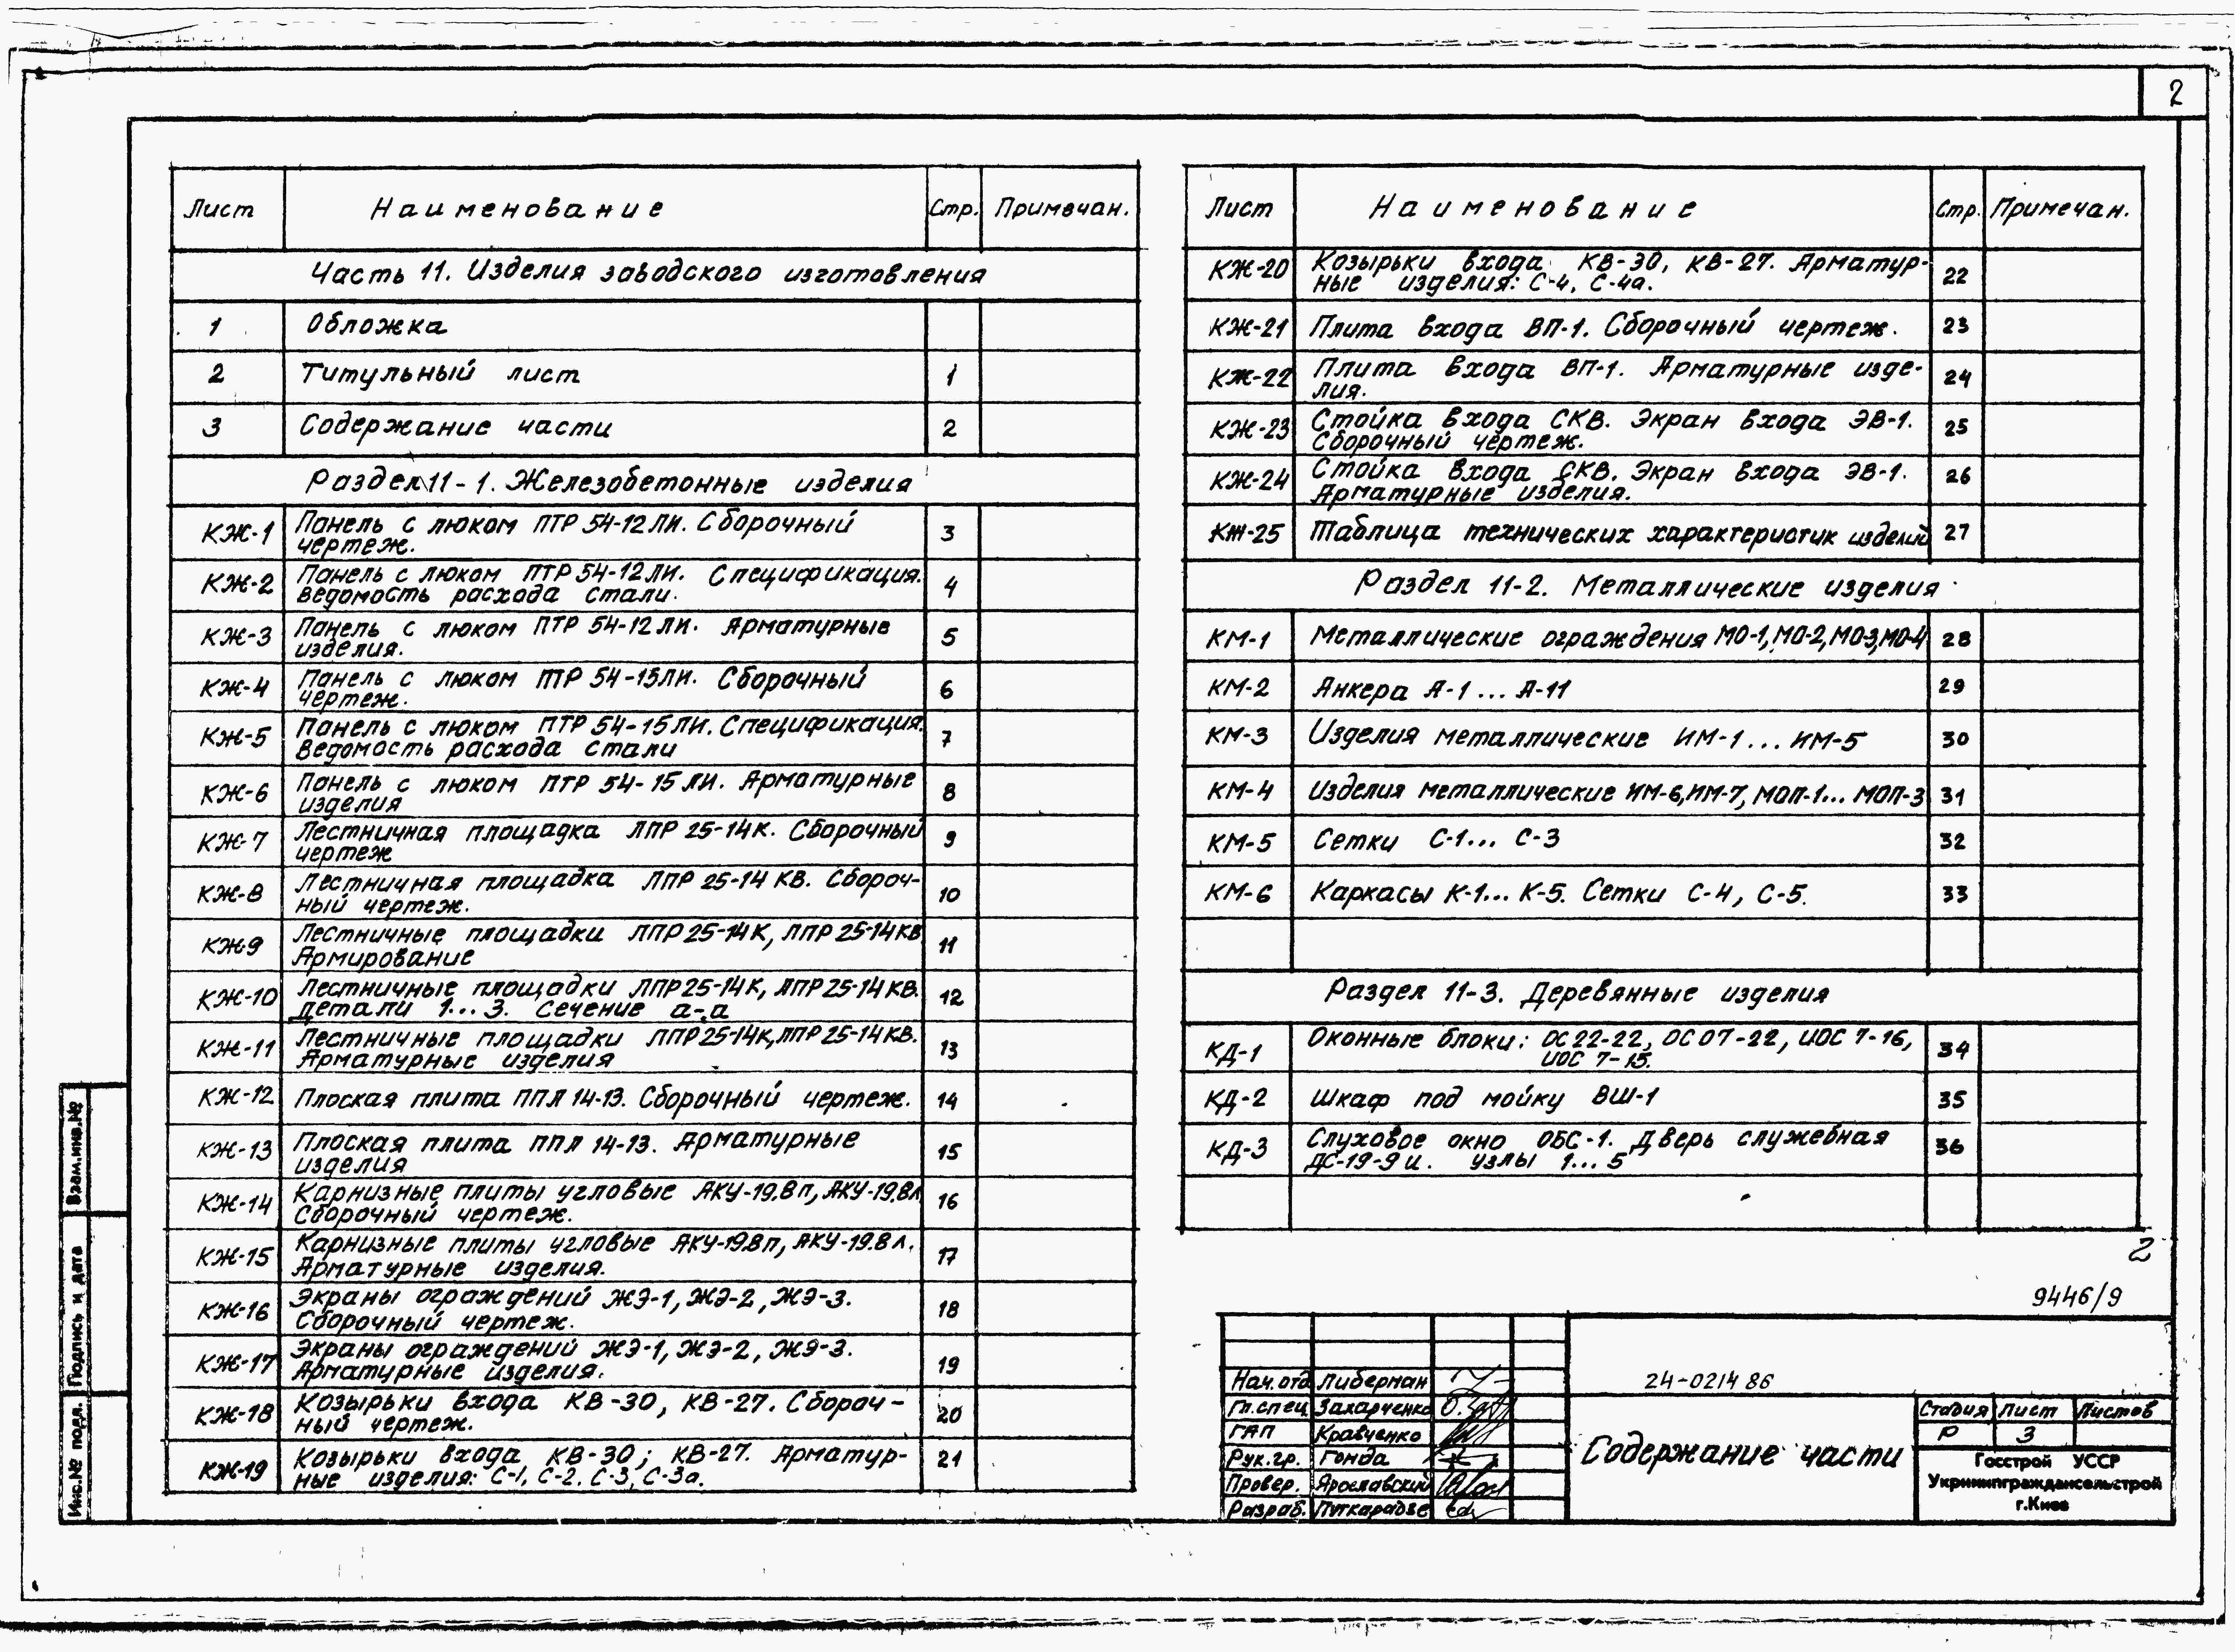 2
Лист Наименование Стр. Примечан.
Часть 11. Изделия заводского изготовления
1 Обложка
2 Титульный лист 1
3 Содержание части 2
Раздел 11-1. Железобетонные изделия
КЖ-1 Панель с люком ПТР 54-12ЛИ. Сборочный
чертеж. 3
КЖ-2 Панель с люком ПТР 54-12ЛИ. Спецификация.
Ведомость расхода стали. 4
КЖ-3 Панель с люком ПТР 54-12ЛИ. Арматурные
изделия. 5
КЖ-4 Панель с люком ПТР 54-15ЛИ. Сборочный
чертеж. 6
КЖ-5 Панель с люком ПТР 54-15ЛИ. Спецификация.
Ведомость расхода стали 7
КЖ-6 Панель с люком ПТР 54-15ЛИ. Арматурные
изделия 8
КЖ-7 Лестничная площадка ЛПР 25-14К. Сборочный
чертеж 9
КЖ-8 Лестничная площадка ЛПР 25-14 КВ. Сбороч-
ный чертеж. 10
КЖ-9 Лестничные площадки ЛПР 25-14К, ЛПР 25-14КВ
Армирование 11
КЖ-10 Лестничные площадки ЛПР 25-14К, ЛПР 25-14КВ.
детали 1...3. Сечение а-а 12
КЖ-11 Лестничные площадки ЛПР 25-14К, ЛПР 25-14КВ.
Арматурные изделия 13
КЖ-12 Плоская плита ППЛ 14-13. Сборочный чертеж. 14
КЖ-13 Плоская плита ППЛ 14-13. Арматурные
изделия 15
КЖ-14 Карнизные плиты угловые АКУ-19.8п, АКУ-19.8л
Сборочный чертеж. 16
КЖ-15 Карнизные плиты угловые АКУ-19.8п, АКУ-19.8л.
Арматурные изделия. 17
КЖ-16 Экраны ограждений ЖЭ-1, ЖЭ-2, ЖЭ-3.
Сборочный чертеж. 18
КЖ-17 Экраны ограждений ЖЭ-1, ЖЭ-2, ЖЭ-3.
Арматурные изделия. 19
КЖ-18 Козырьки входа КВ-30, КВ-27. Сбороч-
ный чертеж. 20
КЖ-19 Козырьки входа КВ-30; КВ-27. Арматур-
ные изделия: С-1, С-2. С-3, С-3а. 21
Лист Наименование Стр. Примечан.
КЖ-20 Козырьки входа КВ-30, КВ-27. Арматур-
ные изделия: С-4, С-4а. 22
КЖ-21 Плита входа ВП-1. Сборочный чертеж. 23
КЖ-22 Плита входа ВП-1. Арматурные изде-
лия. 24
КЖ-23 Стойка входа СКВ. Экран входа ЭВ-1.
Сборочный чертеж. 25
КЖ-24 Стойка входа СКВ. Экран входа ЭВ-1.
Арматурные изделия. 26
КЖ-25 Таблица технических характеристик изделий 27
Раздел 11-2. Металлические изделия
КМ-1 Металлические ограждения МО-1, МО-2, МО-3, МО-4 28
КМ-2 Анкера А-1...А-11 29
КМ-3 Изделия металлические ИМ-1...ИМ-5 30
КМ-4 Изделия металлические ИМ-6, ИМ-7, МОП-1...МОП-3 31
КМ-5 Сетки С-1...С-3 32
КМ-6 Каркасы К-1...К-5. Сетки С-4, С-5. 33
Раздел 11-3. Деревянные изделия
КД-1 Оконные блоки: ОС 22-22, ОС 07-22, ИОС 7-16,
ИОС 7-15. 34
КД-2 Шкаф под мойку ВШ-1 35
КД-3 Слуховое окно ОБС-1. Дверь служебная
ДС-19-9 и. узлы 1...5 36
2
9446/9
Нач.отд. Либерман
Гл.спец. Захарченко
ГАП Кравченко
Рук.гр. Гонда
Провер. Ярославский
Разраб. Путкарадзе
24-0214 86
Содержание части
Стадия Лист Листов
Р 3
Госстрой УССР
Укрниипграждансельстрой
г.Киев
Взам.инв.№
Подпись и дата
Инв.№ подл.